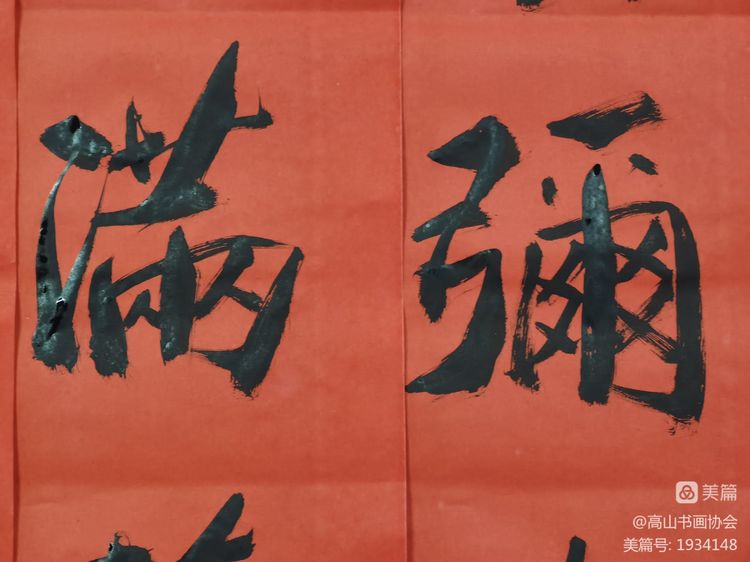 彌
滿
美篇
@高山书画协会
美篇号: 1934148